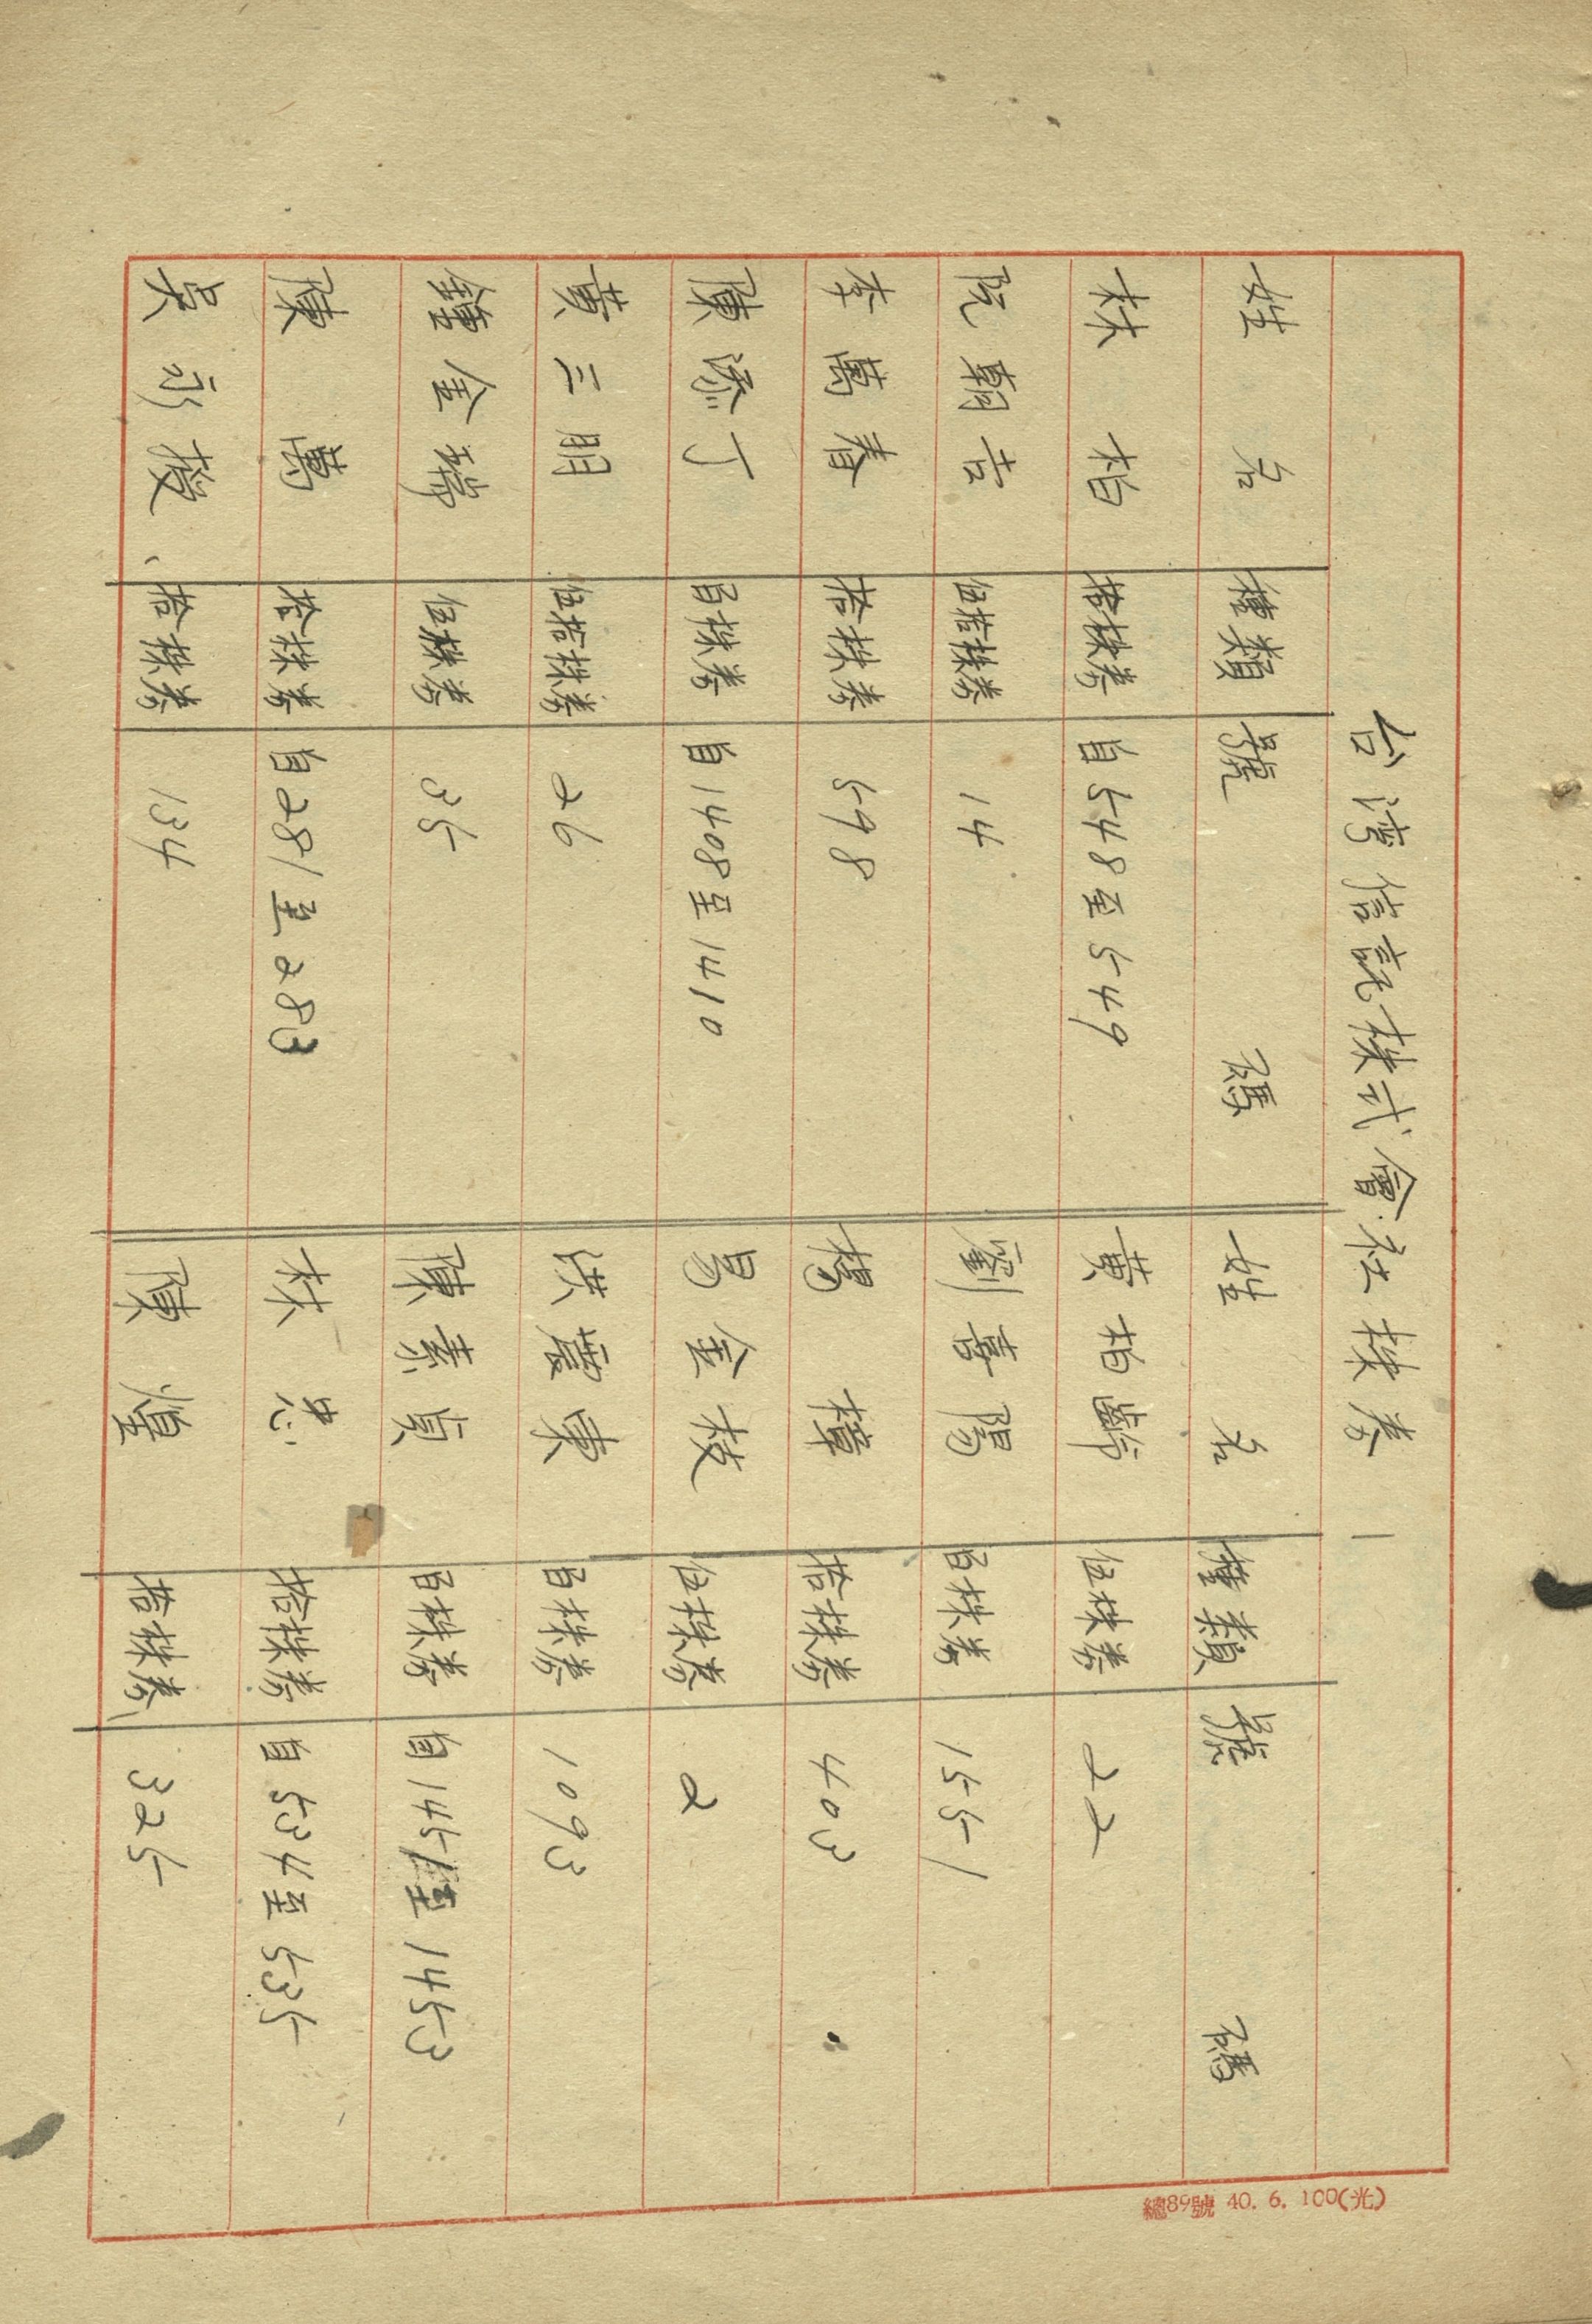 台湾信託株式會社株券
姓名 種類 號碼 姓名 種類 號碼
林柏 拾株券 自548至549 黃柏齡 伍株券 22
阮朝吉 伍拾株券 14 劉喜陽 百株券 1551
李萬春 拾株券 598 楊樟 拾株券 403
陳添丁 百株券 自1408至1410 金枝 伍株券 2
黃三朋 伍拾株券 26 洪東 百株券 1093
鐘金 伍株券 35 陳素貞 百株券 自1451至1453
陳萬 拾株券 自281至283 林忠 拾株券 自534至535
吳永發 拾株券 134 陳 拾株券 325
總89號 40. 6. 100(光)